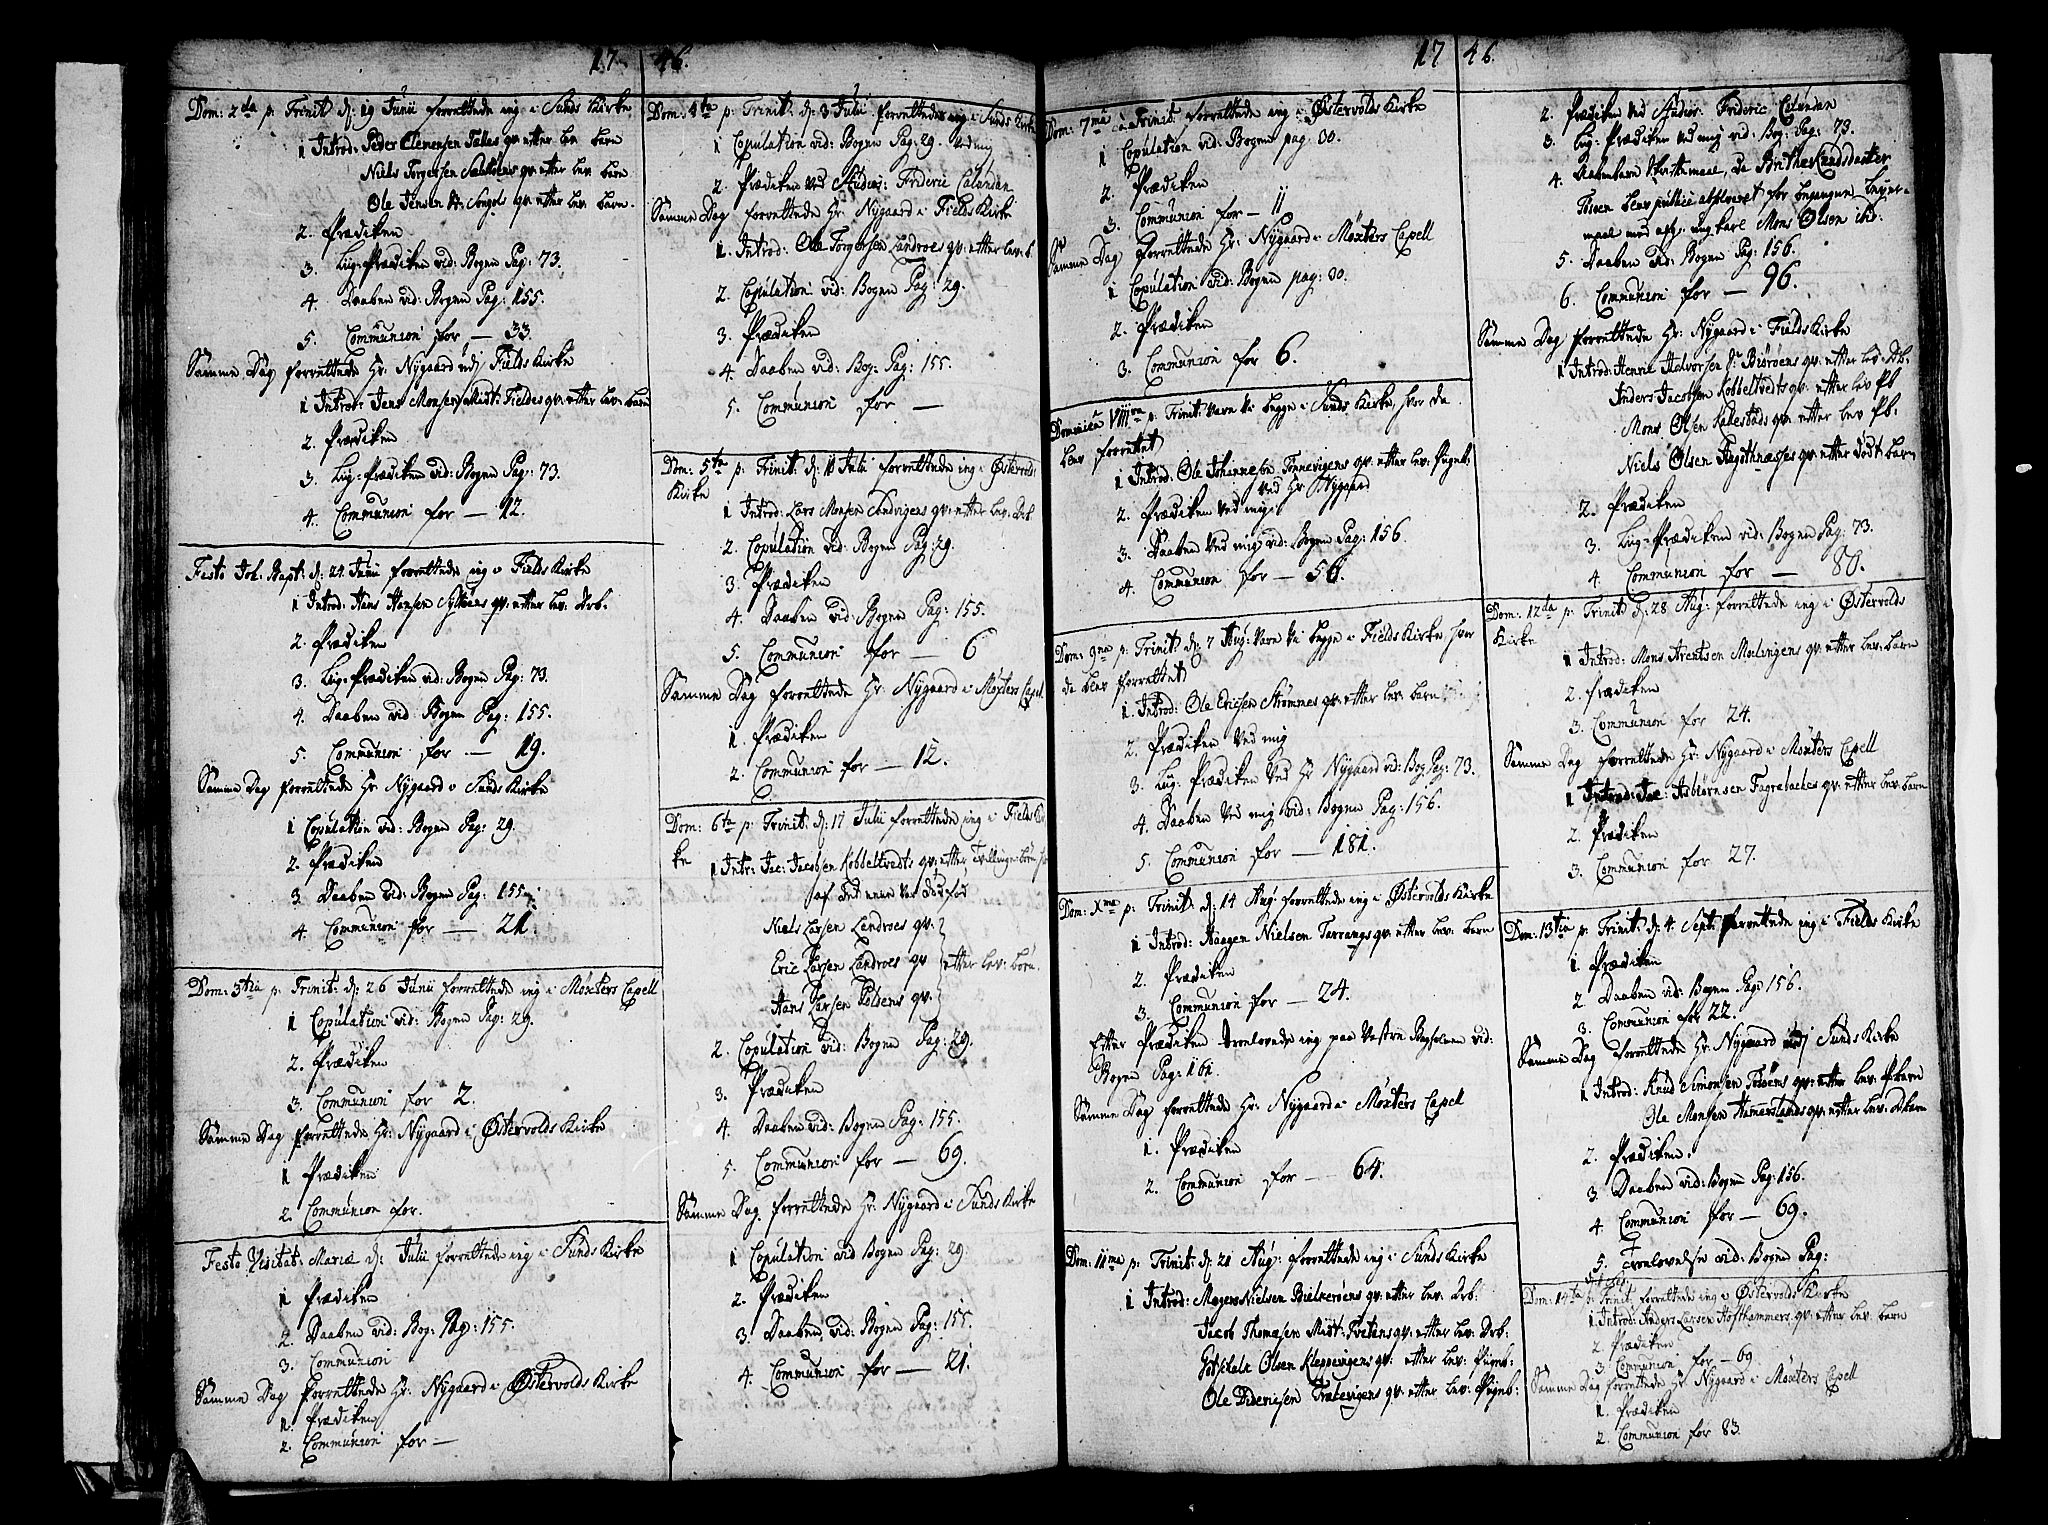 17 46.
Dom: 2da p: Trinit: d: 19 Junii forrettede ieg i Sunds Kirke
1 Introd: Peder Clemensen qv: etter lev barn
Niels Torgersen qv: etter lev barn
Ole Jensen qv: etter lev: barn
2. Prædiken
3. Liig-Prædiken vid: Bogen Pag: 73.
4. Daaben vid: Bogen Pag: 155.
5. Communion for — 33
Samme Dag forrettede Hr: Nygaard udj Fields Kirke
1 Introd: Jens Monsen Midt: Fieldes qv: etter lev: barn
2. Prædiken
3. Liig-Prædiken vid: Bogen Pag: 73.
4. Communion for — 12.
Festo Joh: Bapt: d: 24 Junii forrettede ieg i Fields Kirke
1 Introd: Hans Hansen qv: etter lev: Drb.
2. Prædiken
3. Liig-Prædiken vid: Bogen Pag: 73.
4. Daaben vid: Bogen Pag: 155.
5. Communion for — 19.
Samme Dag forrettede Hr: Nygaard i Sunds Kirke
1 Copulation vid: Bogen Pag: 29.
2. Prædiken
3. Daaben vid: Bogen Pag: 155
4. Communion for — 21.
Dom: 3tia p: Trinit: d: 26 Junii forrettede ieg i Møxters Capell
1 Copulation vid: Bogen Pag: 29.
2. Prædiken
3. Communion for 2.
Samme Dag forrettede Hr: Nygaard i Østervolds Kirke
1 Prædiken
2. Communion for.
Festo Visitat: Mariæ d: Julii forrettede ieg i Sunds Kirke
1 Prædiken
2. Daaben vid: Bog: Pag: 155.
3. Communion
Samme Dag forrettede Hr: Nygaard i Østervolds Kirke
1. Prædiken
2. Communion for —
Dom: 4ta p: Trinit: d: 3 Julii forrettede ieg i Sunds Kirke
1 Copulation vid: Bogen Pag: 29. ved mig
2. Prædiken ved Studios: Frideric Calundan
Samme Dag forrettede Hr: Nygaard i Fields Kirke
1. Introd: Ole Torgersen Landroes qv: etter lev: b.
2. Copulation vid: Bogen Pag: 29.
3. Prædiken
4. Daaben vid: Bog: Pag: 155.
5. Communion for —
Dom: 5ta p: Trinit: d: 10 Julii forrettede ieg i Østervolds
Kirke
1 Introd: Lars Monsen Sandvigens qv: etter lev: Drb
2. Copulation vid: Bogen Pag: 29.
3. Prædiken
4. Daaben vid: Bogen Pag: 155.
5. Communion for — 6
Samme Dag forrettede Hr: Nygaard i Møxters Capel
1. Prædiken
2. Communion for — 12.
Dom: 6ta p: Trinit: d: 17 Julii forrettede ieg i Fields Kir
ke
1 Intr: Jac: Jacobsen Kobbeltvedts qv: etter Tvillinge
af det eene var dødfød
Niels Larsen Landroes qv:
Eric Larsen Landroes qv etter lev: barn.
Hans Larsen qv:
2. Copulation vid: Bogen Pag: 29.
3. Prædiken
4. Daaben vid: Bogen Pag: 155.
5. Communion for — 69.
Samme Dag forrettede Hr: Nygaard i Sunds Kirke
1 Copulation vid Bogen Pag: 29.
2. Prædiken
3. Daaben vid: Bogen Pag: 155.
4. Communion for — 21.
17 46.
Dom: 7ma p: Trinit: forrettede ieg i Østervolds Kirke
1 Copulation vid: Bogen pag: 30.
2. Prædiken
3. Communion for — 11
Samme Dag forrettede Hr: Nygaard i Møxters Capell
1 Copulation vid: Bogen pag: 30.
2. Prædiken
3. Communion for 6.
Dominica VIIIva p: Trinit: vare vi begge i Sunds Kirke, hvor da
blev forrettet
1 Introd: Ole Johannesen Tonnevigens qv: etter lev: Pigeb:
ved Hr: Nygaard
2. Prædiken ved mig
3. Daaben ved mig vid: Bogen Pag: 156.
4. Communion for — 56.
Dom: 9na p: Trinit: d: 7 Aug: vare vi begge i Fields Kirke, hvor
da blev forrettet
1. Introd: Ole Ericsen Strømnes qv: etter lev: barn
2. Prædiken ved mig
3. Liig-Prædiken ved Hr Nygaard vid: Bog Pag: 73.
4. Daaben ved mig vid: Bogen Pag: 156.
5. Communion for — 181.
Dom: Xma p: Trinit: d: 14 Aug: forrettede ieg i Østervolds Kirke
1 Introd: Haagen Nielsen Tarrangs qv: etter lev: barn
2. Prædiken
3. Communion for — 24.
Etter Prædiken tronlovede ieg paa vid:
Bogen Pag: 161.
Samme Dag forrettede Hr: Nygaard i Møxters Capell
1. Prædiken
2. Communion for — 64.
Dom: 11ma p: Trinit: d: 21 Aug: forrettede ieg i Sunds Kirke
1 Introd: Mogens Nielsen Bielkerøens qv: etter lev: Drb.
Jacob Thomæsen Midt: qv: etter lev: Drb:
Gotskalk Olsen Kleppevigens qv: etter lev: Pigeb:
Ole Didericsen Trælevigens qv: etter lev: Pigeb:
2. Prædiken ved Studios: Frideric Calundan
3. Liig-Prædiken ved mig vid: Bog: Pag: 73.
4. Aabenbare Skriftemaal, da Brithe Knudsdatter
Tosøen blev publice absolveret for begangne Leyer-
maal med ungkarl Mons Olsen ibid:
5. Daaben vid: Bogen Pag: 156.
6. Communion for — 96.
Samme Dag forrettede Hr: Nygaard i Fields Kirke
1 Introd: Henric Halvorsen Biørøens qv: etter lev: Db.
Anders Jacobsen Kobbeltvedts qv: etter lev Pb
Mons Olsen Kallestads qv: etter lev Pb.
Niels Olsen qv: etter dødt barn
2. Prædiken
3. Liig-Prædiken vid: Bogen Pag: 73.
4. Communion for — 80.
Dom: 12da p: Trinit: d: 28 Aug: forrettede ieg i Østervolds
Kirke
1 Introd: Mons Arentsen Møvingens qv: etter lev: barn
2. Prædiken
3. Communion for 24.
Samme Dag forrettede Hr: Nygaard i Møxters Capell
1 Introd: Asbiørnsen Fagrebakes qv: etter lev: barn
2. Prædiken
3. Communion for 27.
Dom: 13tia p: Trinit: d: 4. Sept: forrettede ieg i Fields Kirke
1. Prædiken
2. Daaben vid: Bogen Pag: 156.
3. Communion for 22.
Samme Dag forrettede Hr: Nygaard udj Sunds Kirke
1 Introd: Knud Simonsen Tosøens qv: etter lev. Pbarn
Ole Monsen Hammerslands qv: etter lev: Dbarn
2. Prædiken.
3. Daaben vid: Bogen Pag: 156.
4. Communion for — 69.
5. Tronlovelse vid: Bogen Pag:
Dom: 14ta p: Trinit: forrettede ieg i Østervolds Kirke
1. Introd: Anders Larsen Hofthammers qv: etter lev: barn
2. Prædiken
3. Communion for — 69
Samme Dag forrettede Hr: Nygaard i Møxters Capell
1. Prædiken
2. Communion for 83.